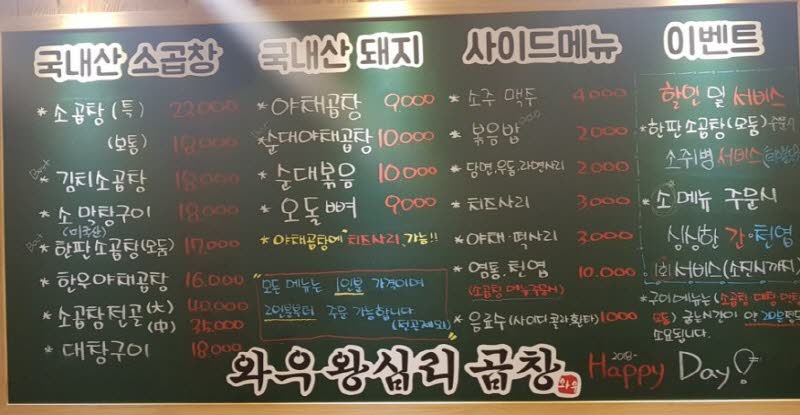 국내산 소곱창
* 소곱탕 (특) 22,000
(보통) 18,000
Best * 김치소곱탕 18,000
* 소 막창구이 18,000
(미국산)
Best * 한판소곱탕(모둠) 17,000
* 한우야채곱탕 16,000
* 소곱탕전골 (大) 40,000
(中) 35,000
* 대창구이 18,000
국내산 돼지
* 야채곱탕 9,000
Best * 순대야채곱탕 10,000
* 순대볶음 10,000
* 오돌뼈 9,000
* 야채곱탕에 치즈사리 가능!!
"모든 메뉴는 1인분 가격이며
2인분부터 주문 가능합니다
(전골제외)"
사이드메뉴
* 소주 맥주 4,000
* 볶음밥 2,000
* 당면,우동,라면사리 2,000
* 치즈사리 3,000
* 야채·떡사리 3,000
* 염통,천엽 10,000
* 음료수(사이다콜라환타) 1000
이벤트
할인 및 서비스
* 한판소곱탕(모둠)
소주1병 서비스
* 소 메뉴 주문시
싱싱한 간·천엽
1회 서비스(소진시까지)
* 구이메뉴는 (소곱탕 대창
모둠) 굽는시간이 약 20분
소요됩니다.
와우 왕십리 곱창
와우
2018-
Happy Day!